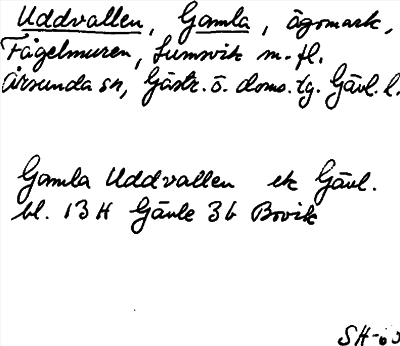 Uddvallen, Gamla, ägomark,
Fågelmuren, Lumsvik m. fl.
Årsunda sn, Gästr. ö. doms. tg. Gävl. l.
Gamla Uddvallen ek Gävl.
bl. 13 H Gävle 3b Bovik